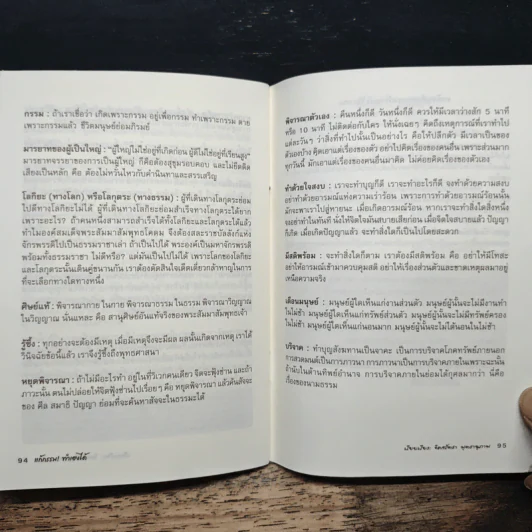 กรรม : ถ้าเราเชื่อว่า เกิดเพราะกรรม อยู่เพื่อกรรม ทำเพราะกรรม ตาย
เพราะกรรมแล้ว ชีวิตมนุษย์ย่อมภิรมย์
มารยาทของผู้เป็นใหญ่ : "ผู้ใหญ่ไม่ใช่อยู่ที่เกิดก่อน ผู้ดีไม่ใช่อยู่ที่เรียนสูง"
มารยาทจรรยาของการเป็นผู้ใหญ่ ก็คือต้องสุขุมรอบคอบ และไม่ยึดติด
เสียงเป็นหลัก คือ ต้องไม่หวั่นไหวกับคำนินทาและสรรเสริญ
โลกิยะ (ทางโลก) หรือโลกุตระ (ทางธรรม) : ผู้ที่เดินทางโลกุตระย่อม
ไปดีทางโลกิยะไม่ได้ ผู้ที่เดินทางโลกิยะย่อมสำเร็จทางโลกุตระได้ยาก
เพราะอะไร? ถ้าคนหนึ่งสามารถสำเร็จได้ทั้งโลกิยะและโลกุตระได้แล้ว
ทำไมองค์สมเด็จพระสัมมาสัมพุทธโคดม จึงต้องสละราชบัลลังก์แห่ง
จักรพรรดิไปเป็นธรรมราชาเล่า ถ้าเป็นไปได้ พระองค์ก็เป็นมหาจักรพรรดิ
พร้อมทั้งธรรมราชา ไม่ดีหรือ? แต่มันเป็นไปไม่ได้ เพราะทางโลกิยะ
และโลกุตระนั้นเดินคู่ขนานกัน เราต้องตัดสินใจเด็ดเดี่ยวกล้าหาญในการ
ที่จะเลือกทางใดทางหนึ่ง
ศิษย์แท้ : พิจารณากาย ในกาย พิจารณาธรรม ในธรรม พิจารณาวิญญาณ
ในวิญญาณ นั่นแหละ คือ สานุศิษย์อันแท้จริงของพระสัมมาสัมพุทธเจ้า
รู้ซึ้ง : ทุกอย่างจะต้องมีเหตุ เมื่อมีเหตุจึงจะมีผล ผลนั้นเกิดจากเหตุ เราได้
วินิจฉัยข้อนี้แล้ว เราจึงรู้ซึ้งถึงพุทธศาสนา
หยุดพิจารณา : ถ้าไม่มีอะไรทำ อยู่ในที่วิเวกคนเดียว จิตจะฟุ้งซ่าน และถ้า
ภาวะนั้น ตนไม่ปล่อยให้จิตฟุ้งซ่านไปเรื่อยๆ คือ หยุดพิจารณา แล้วค้นสัจจะ
ของ ศีล สมาธิ ปัญญา ย่อมที่จะค้นหาสัจจะในธรรมะได้
94 แก้กรรม! ทำเองได้
พิจารณาตัวเอง : คืนหนึ่งก็ดี วันหนึ่งก็ดี ควรให้มีเวลาว่างสัก 5 นาที
หรือ 10 นาที ไม่ติดต่อกับใคร ให้นั่งเฉยๆ คิดถึงเหตุการณ์ที่เราทำไป
แต่ละวันๆ ว่าสิ่งที่ทำไปนั้นเป็นอย่างไร คือให้ปลีกตัว มีเวลาเป็นของ
ตัวเองบ้าง คิดเอาแต่เรื่องของตัว อย่าไปคิดเรื่องของคนอื่น เพราะส่วนมาก
ทุกวันนี้ มักเอาแต่เรื่องของคนอื่นมาคิด ไม่ค่อยคิดเรื่องของตัวเอง
ทำด้วยใจสงบ : เราจะทำบุญก็ดี เราจะทำอะไรก็ดี จงทำด้วยความสงบ
อย่าทำด้วยอารมณ์แห่งความเร่าร้อน เพราะการทำด้วยอารมณ์ร้อนนั้น
มักจะพาเราไปสู่หายนะ เมื่อเกิดอารมณ์ร้อน หากเราจะทำสิ่งใดสิ่งหนึ่ง
จงอย่าทำในทันที นั่งให้จิตใจมันสบายเสียก่อน เมื่อจิตใจสบายแล้ว ปัญญา
ก็เกิด เมื่อเกิดปัญญาแล้ว จะทำสิ่งใดก็เป็นไปโดยสะดวก
มีสติพร้อม : จะทำสิ่งใดก็ตาม เราต้องมีสติพร้อม คือ อย่าให้มีโทสะ
อย่าให้อารมณ์เข้ามาควบคุมสติ อย่าให้เรื่องส่วนตัวและขาดเหตุผลมาอยู่
เหนือความจริง
เตือนมนุษย์ : มนุษย์ผู้ใดเห็นแก่งานส่วนตัว มนุษย์ผู้นั้นจะไม่มีงานทำ
ในไม่ช้า มนุษย์ผู้ใดเห็นแก่ทรัพย์ส่วนตัว มนุษย์ผู้นั้นจะไม่มีทรัพย์ครอง
ในไม่ช้า มนุษย์ผู้ใดเห็นแก่นอนมาก มนุษย์ผู้นั้นจะไม่ได้นอนในไม่ช้า
บริจาค : ทำบุญสังฆทานเป็นจาคะ เป็นการบริจาคโภคทรัพย์ภายนอก
การสวดมนต์เป็นการภาวนา การภาวนาเป็นการบริจาคภายในเพราะฉะนั้น
ถ้านับในด้านทิพย์อำนาจ การบริจาคภายในย่อมได้กุศลมากกว่า นี่คือ
เรื่องของนามธรรม
95